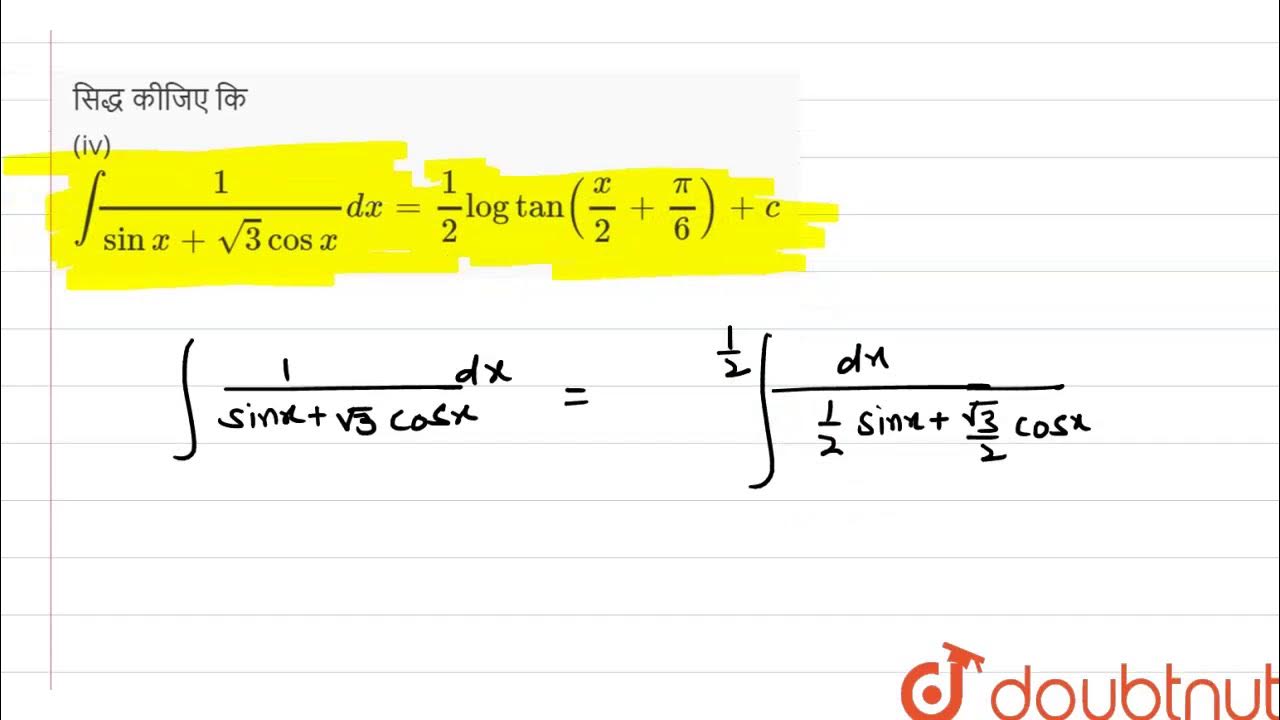 सिद्ध कीजिए कि
(iv)
∫ 1/(sin x + √3 cos x) dx = 1/2 log tan(x/2 + π/6) + c
∫ 1/(sinx + √3 cosx) dx = 1/2 ∫ dx/(1/2 sinx + √3/2 cosx)
doubtnut